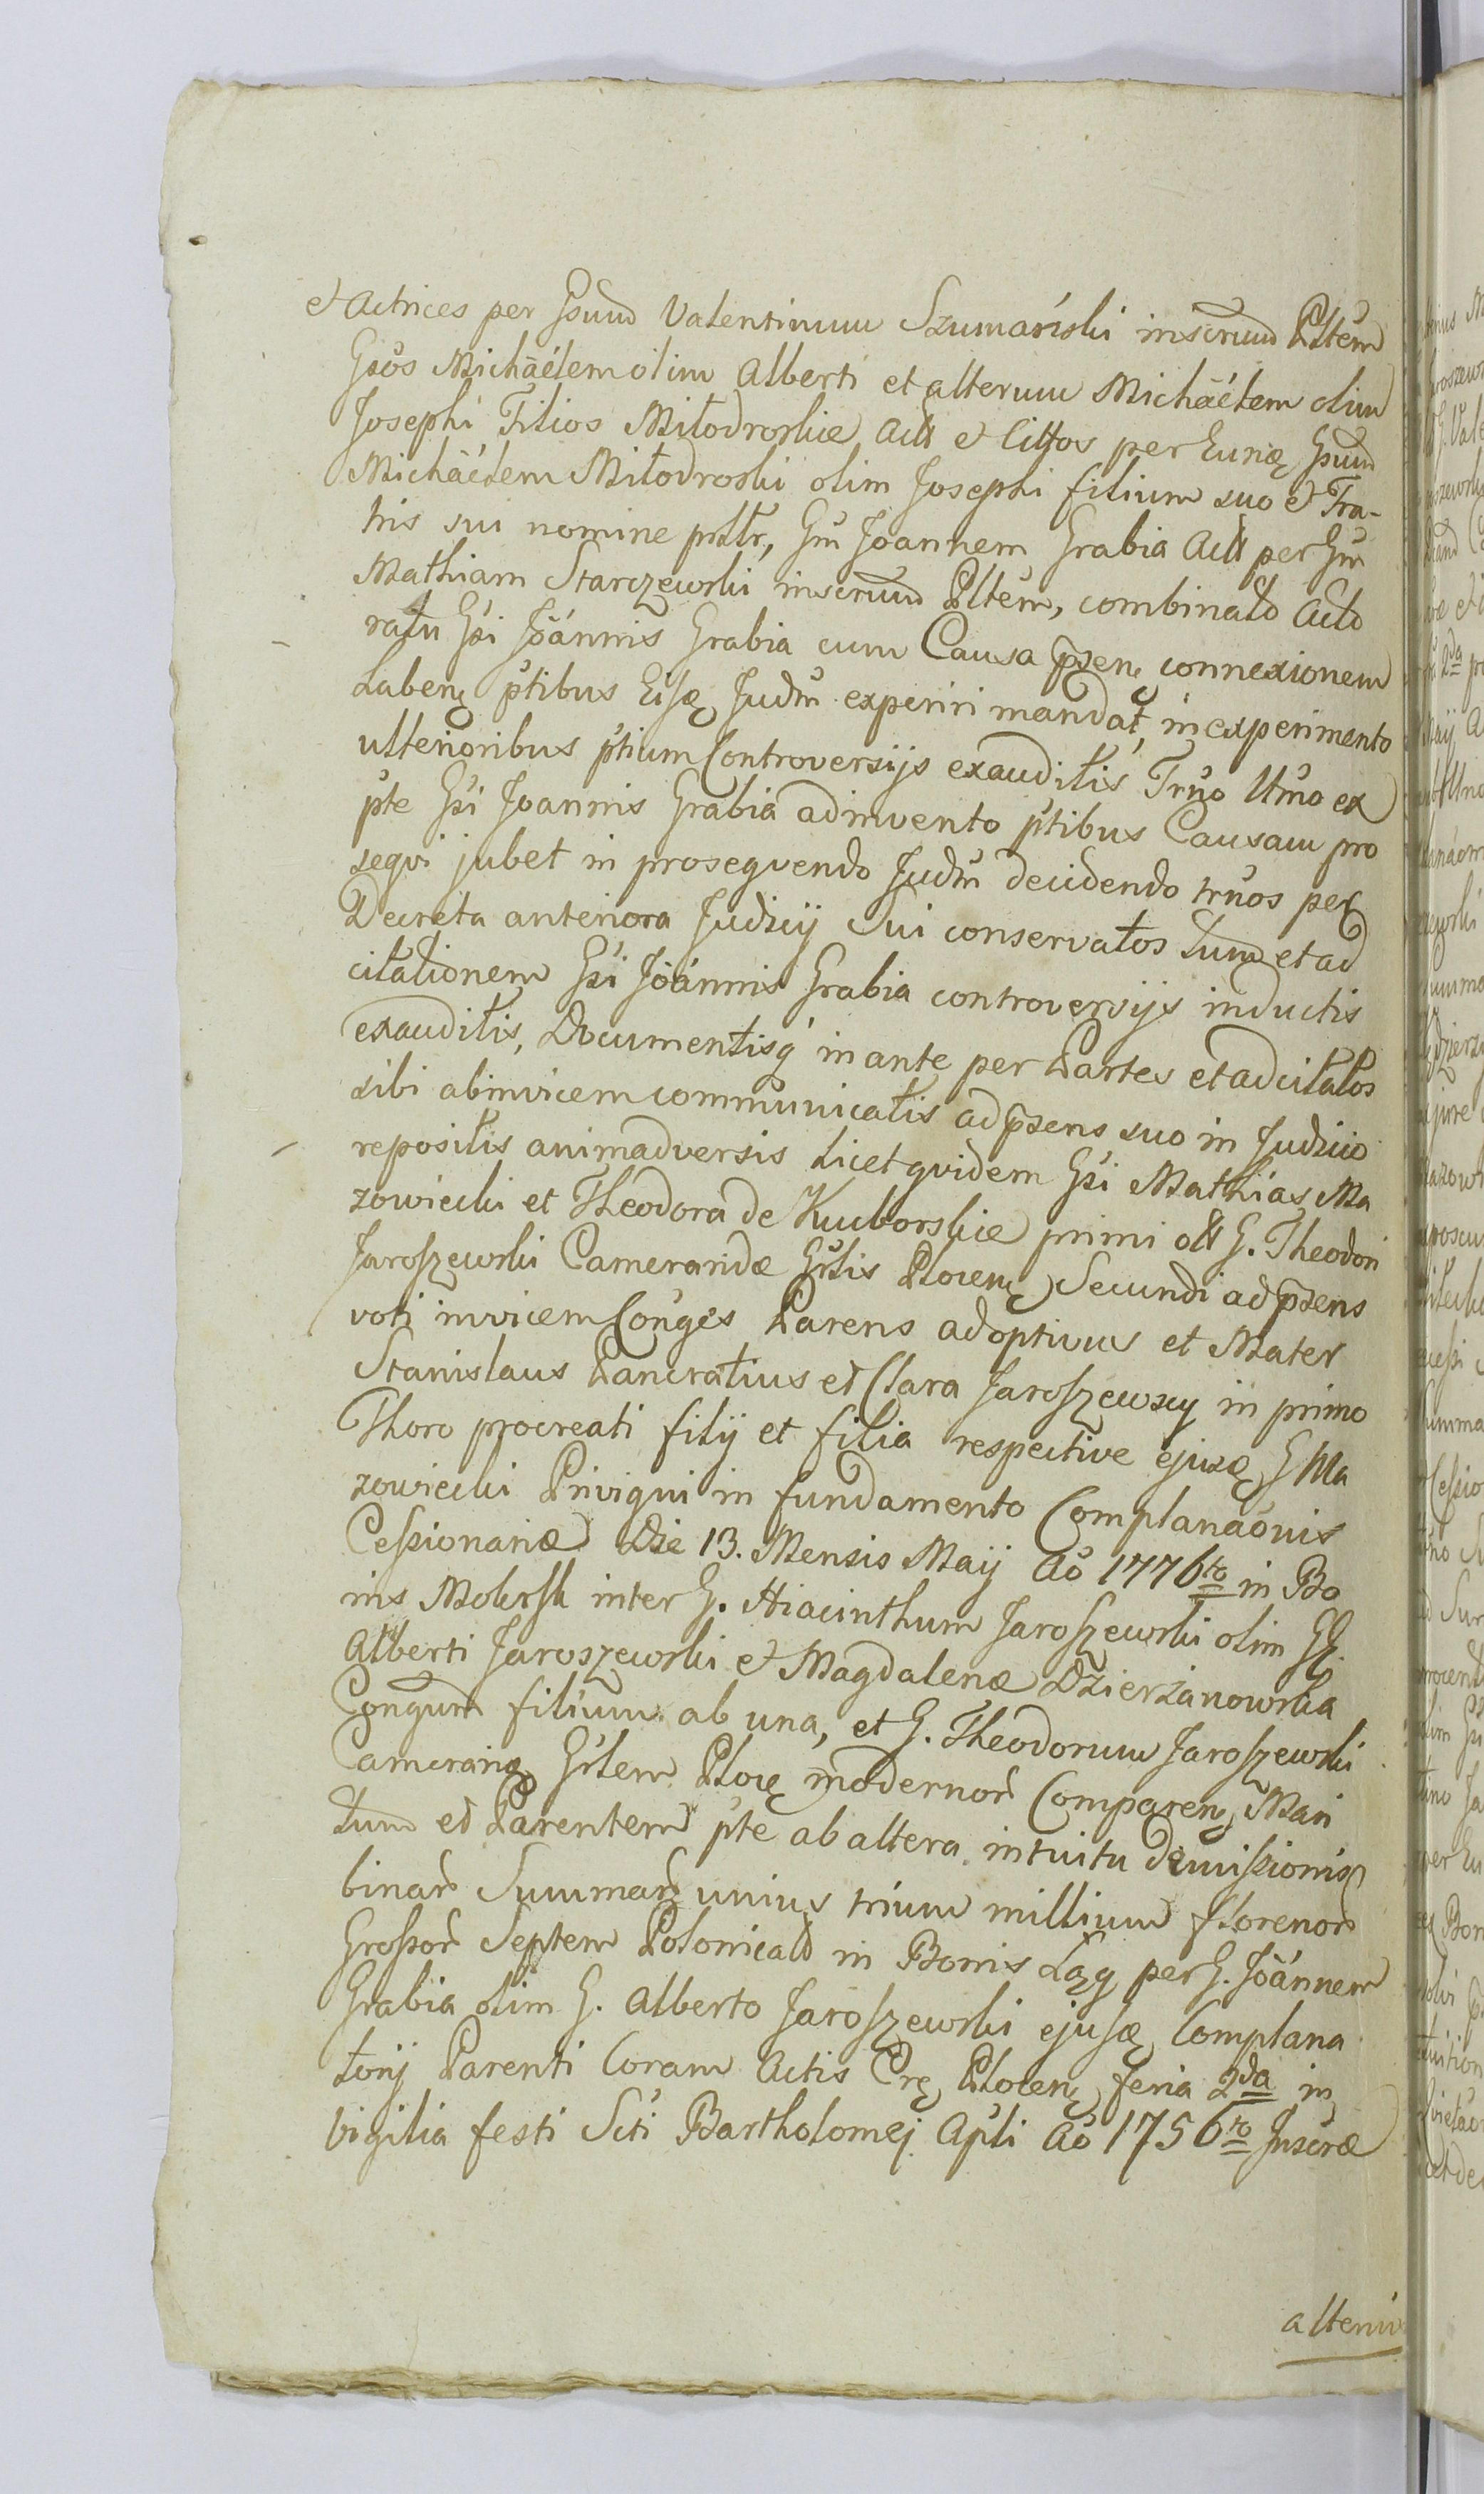 et Actrices per Gsum Valentinum Szumański inscrum Pltem
Gsos Michäélem olim Alberti et alterum Michäélem olim
Josephi Filios Miłodroskie Act et Cittos per Eunq Gsum
Michäélem Miłodroski olim Josephi filium suo et Fra-
tris sui nomine prltr, Gm Joannem Grabia Act per Gm
Mathiam Starczewski inscrum Pltem, combinato Acto
ratu Gsi Jöánnis Grabia cum Causa pzenq connexionem
habenq ptibus Eisq Judm experiri mandat, in experimento
ulterioribus ptium Controversijs exauditis, Trno Umo ex
pte Gsi Joannis Grabia adinvento ptibus Causam pro
seqvi jubet in proseqvendo Judm decidendo trnos per
Decreta anteriora Judicij Sui conservatos tum et ad
citationem Gsi Jöánnis Grabia controversijs inductis
exauditis, Documentisq inante per Partes et adcitatos
sibi abinvicem communicatis ad pzens suo in Judicio
repositis animadversis licet qvidem Gsi Mathias Ma
zowiecki et Theodora de Kuczborskie primi olt G. Theodori
Jaroszewski Cameraridæ Grlis Plocenq Secundi ad pzens
voti invicem Conges Parens adoptivus et Mater
Stanislaus Pancratius et Clara Jaroszewscy in primo
Thoro procreati filij et filia respective ejusq G Ma
zowiecki Privigni in fundamento Complanaonis
Cessionariæ Die 13. Mensis Maij Ao 1776to in Bo
nis Mokrsk inter G. Hiacinthum Jaroszewski olim GG.
Alberti Jaroszewski et Magdalenæ Dzierżanowska
Congum filium ab una, et G. Theodorum Jaroszewski
Camerariq Grlem Plocq modernor Comparenq Mari
tum et Parentem pte ab altera intuitu demissionis
binar Summar unius trium millium florenor
Grossor Septem Polonicalo in Bonis Łąg per G. Jöánnem
Grabia olim G. Alberto Jaroszewski ejusq Complana
torij Parenti Coram Actis Crq Plocenq feria 2da in
vigilia festi Scti Bartholomej Apli Ao 1756to Inscræ
alterius